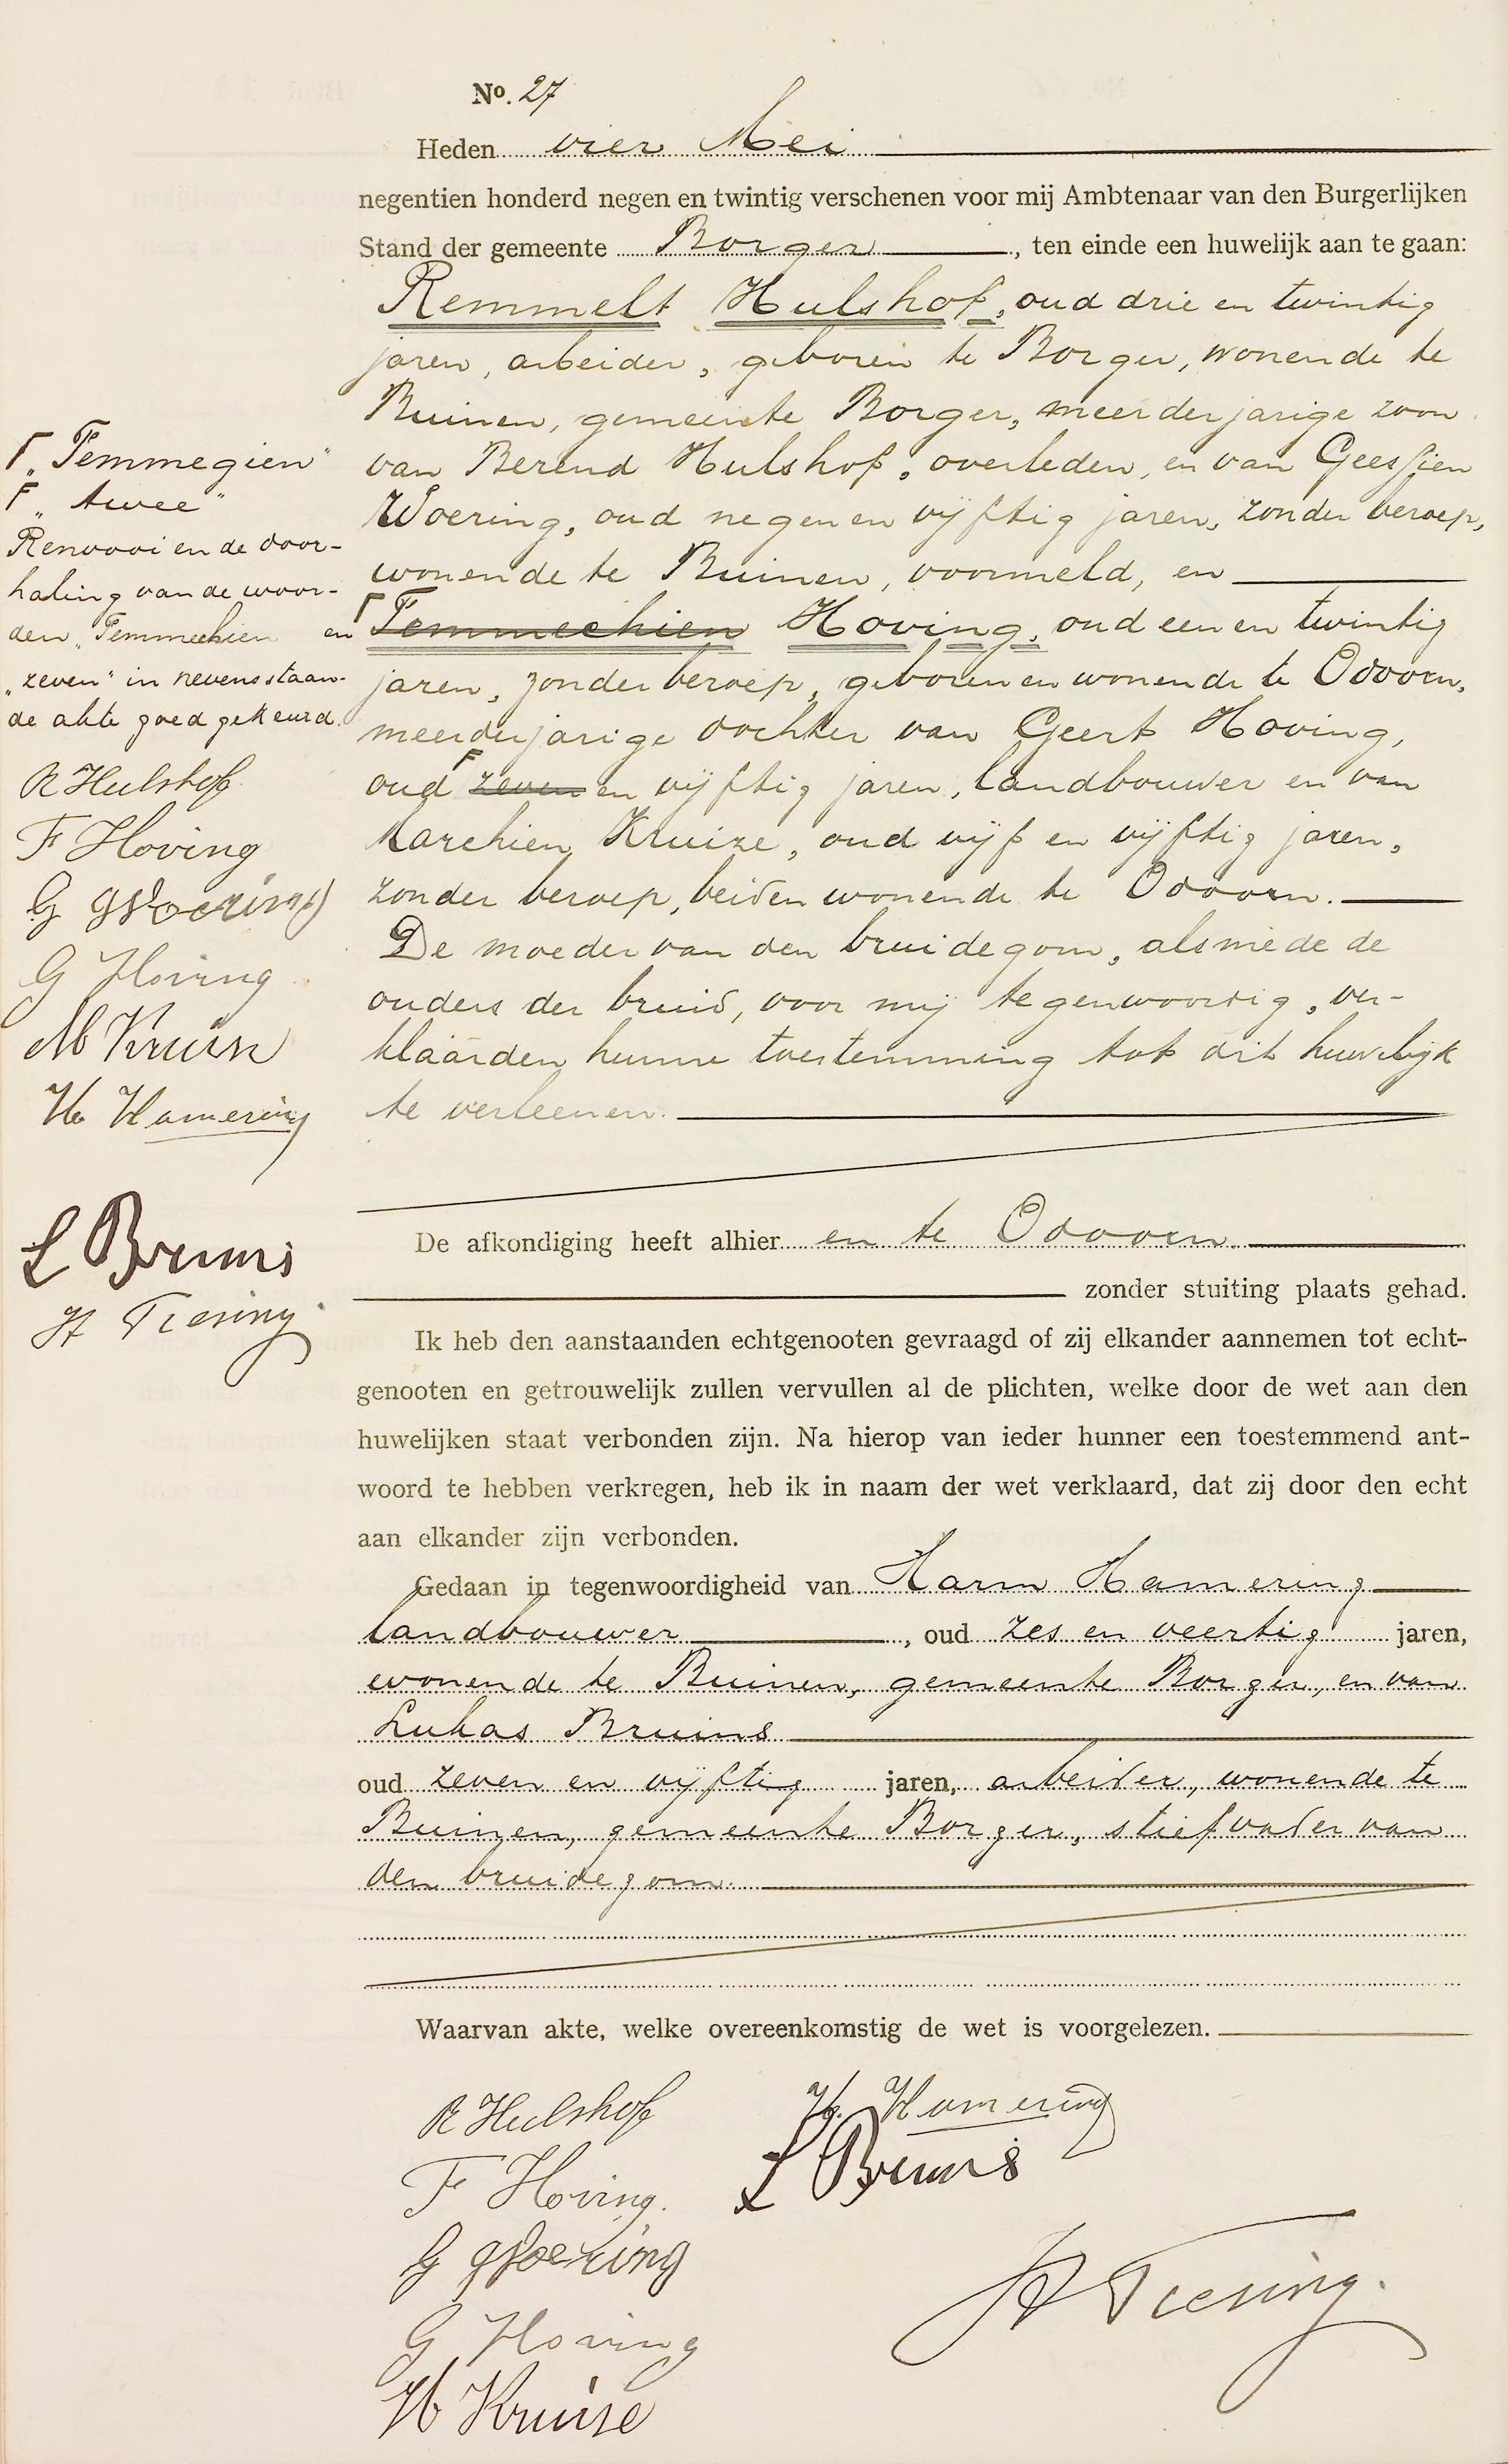 No. 27
Heden vier Mei
negentien honderd negen en twintig verschenen voor mij Ambtenaar van den Burgerlijken
Stand der gemeente Borger, ten einde een huwelijk aan te gaan:
Remmelt Hulshof, oud drie en twintig
jaren, arbeider, geboren te Borger, wonende te
Buinen, gemeente Borger, meerderjarige zoon
van Berend Hulshof, overleden, en van Geessien
Woering, oud negen en vijftig jaren, zonder beroep,
wonende te Buinen, voormeld, en
Temmechien Hoving, oud een en twintig
jaren, zonder beroep, geboren en wonende te Odoorn,
meerderjarige dochter van Geert Hoving,
oud zeven en vijftig jaren, landbouwer en van
Marchien Kruize, oud vijf en vijftig jaren,
zonder beroep, beiden wonende te Odoorn.
De moeder van den bruidegom, alsmede de
ouders der bruid, voor mij tegenwoordig, ver-
klaarden hunne toestemming tot dit huwelijk
te verleenen.
"Femmegien"
"twee"
Renvooi en de door-
haling van de woor-
den "Temmechien en
"zeven" in nevensstaan-
de akte goedgekeurd.
R Hulshof
F Hoving
G Woering
G Hoving
M Kruise
H Hamering
L Bruins
H Tiesing
De afkondiging heeft alhier en te Odoorn
zonder stuiting plaats gehad.
Ik heb den aanstaanden echtgenooten gevraagd of zij elkander aannemen tot echt-
genooten en getrouwelijk zullen vervullen al de plichten, welke door de wet aan den
huwelijken staat verbonden zijn. Na hierop van ieder hunner een toestemmend ant-
woord te hebben verkregen, heb ik in naam der wet verklaard, dat zij door den echt
aan elkander zijn verbonden.
Gedaan in tegenwoordigheid van Harm Hamering
landbouwer, oud zes en veertig jaren,
wonende te Buinen, gemeente Borger, en van
Lukas Bruins
oud zeven en vijftig jaren, arbeider, wonende te
Buinen, gemeente Borger, stiefvader van
den bruidegom.
Waarvan akte, welke overeenkomstig de wet is voorgelezen.
R Hulshof
F Hoving.
G Woering
G Hoving
M Kruise
H. Hamering
L Bruins
H Tiesing.